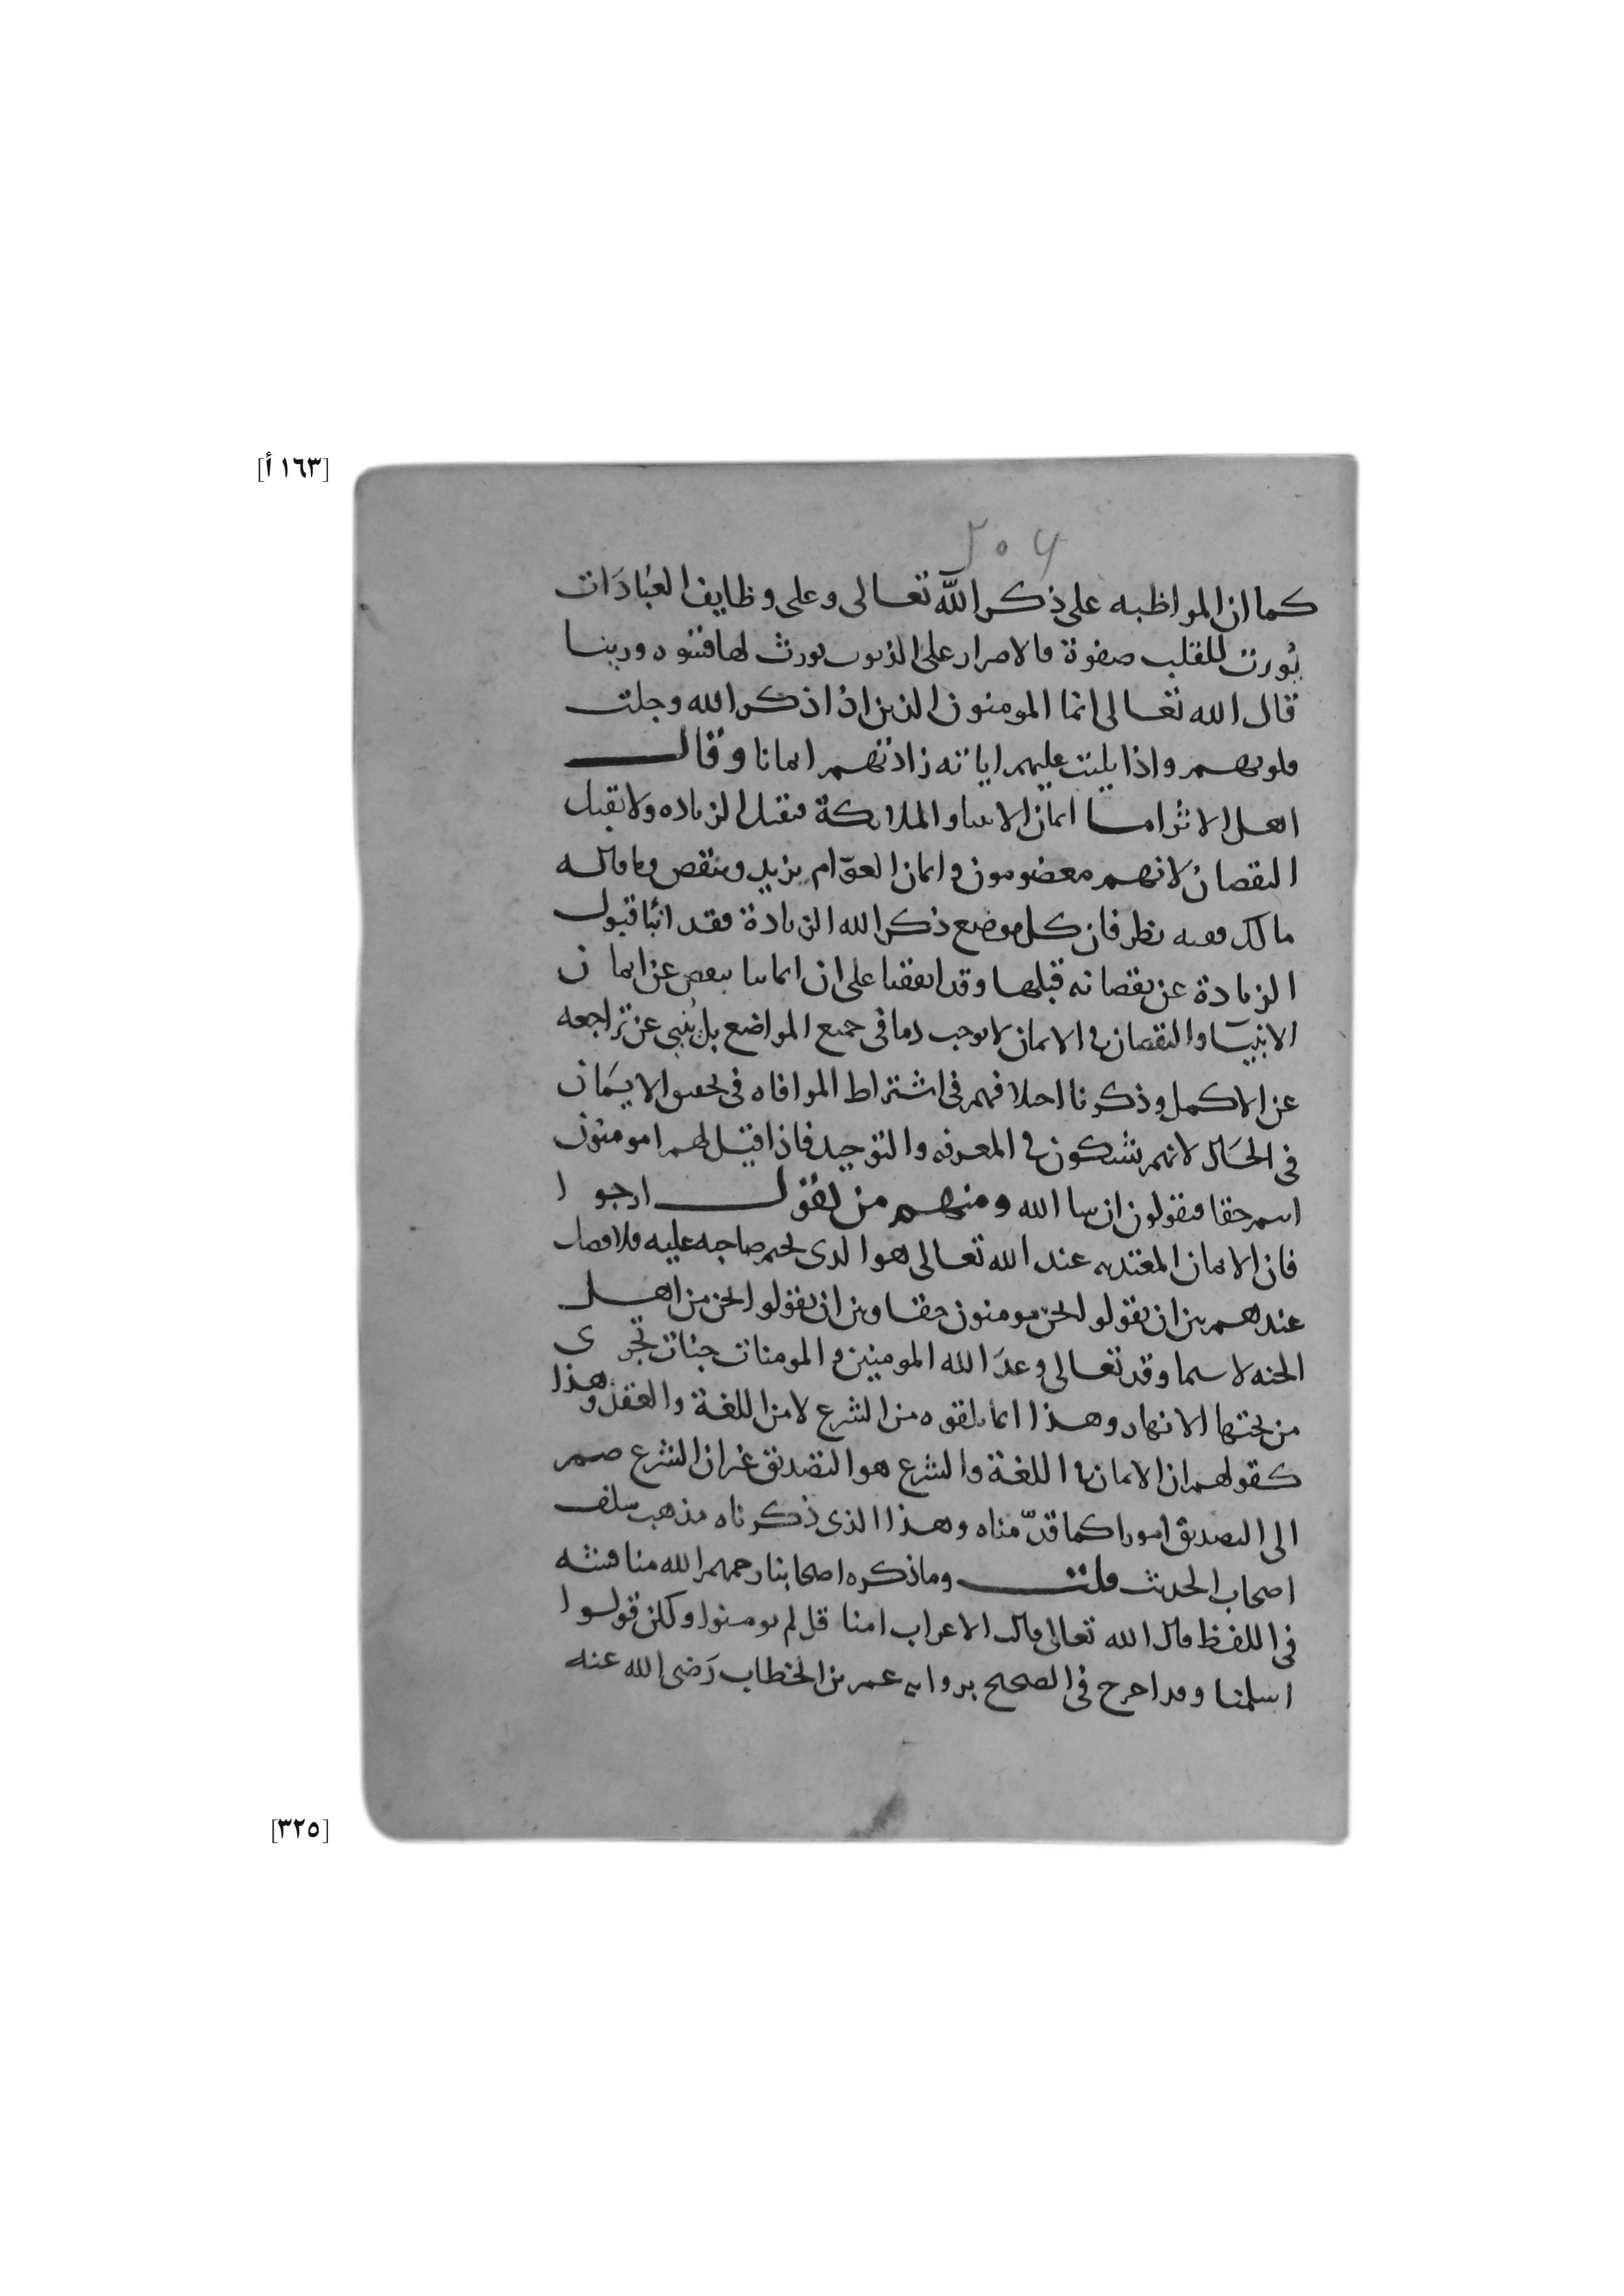 [١٦٣ أ]
٢٠٤
كما ان المواظبه على ذكر الله تعالى وعلى وظايف العبادات
يورث للقلب صفوة فالاصرار على الذنوب يورث لها قسوه ورينا
قال الله تعالى انما المومنون الذين اذا ذكر الله وجلت
قلوبهم واذا تليت عليهم اياته زادتهم ايمانا وقال
اهل الاثر اما ايمان الانبيا والملايكة فيقبل الزياده ولا يقبل
النقصان لانهم معصومون وايمان العوام يزيد وينقص وما قاله
مالك ففيه نظر فان كل موضع ذكر الله الزيادة فقد انبا قبول
الزيادة عن نقصانه قبلها وقد اتفقنا على ان ايماننا ينقص عن ايمان
الانبيا والنقصان في الايمان لا يوجب ذما في جميع المواضع بل ينبي عن تراجعه
عن الاكمل وذكرنا اختلافهم في اشتراط الموافاه في الايمان
في الحال لانهم يشكون في المعرفه والتوحيد فاذا قيل لهم امومنون
انتم حقا فيقولون ان شا الله ومنهم من يقول ارجوا
فان الايمان المعتد به عند الله تعالى هو الذي يختم صاحبه عليه فلا فصل
عندهم بين ان يقولوا نحن مومنون حقا وبين ان يقولوا نحن من اهل
الجنه لا سيما وقد تعالى وعد الله المومنين والمومنات جنات تجري
من تحتها الانهار وهذا انما تلقوه من الشرع لا من اللغة والعقل وهذا
كقولهم ان الايمان في اللغة والشرع هو التصديق غير ان الشرع ضم
الى التصديق امورا كما قدمناه وهذا الذي ذكرناه مذهب سلف
اصحاب الحديث قلت وما ذكره اصحابنا رحمهم الله مناقشه
في اللفظ قال الله تعالى قالت الاعراب امنا قل لم تومنوا ولكن قولوا
اسلمنا وقد اخرج في الصحيح برواية عمر بن الخطاب رضي الله عنه
[٣٢٥]